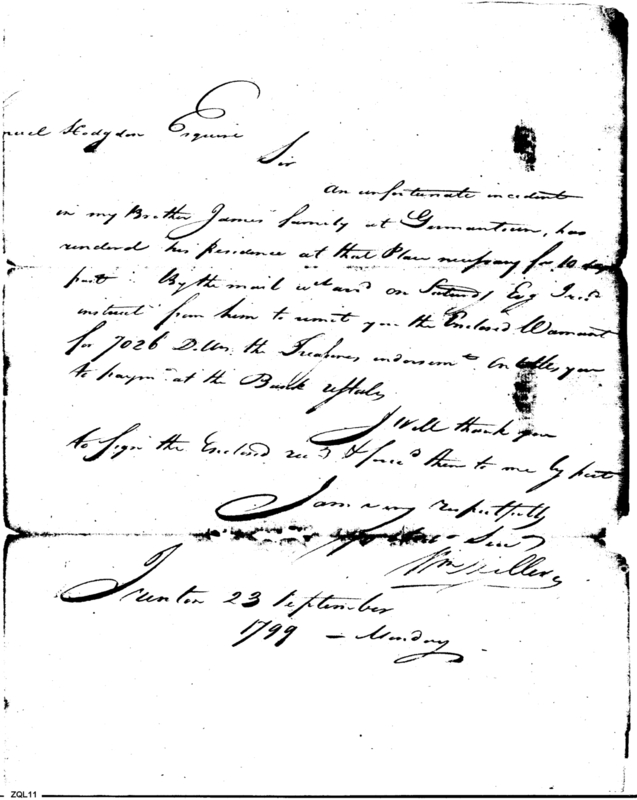 Hodgdon Esquire
Sir
An unfortunate incident
in my Brother James family at Germantown, has
renderd his Residence at that Place necessary for 10 days
past. By the mail on I rec.d
instruct.s from him to remit you the Enclosed Warrant
for 7026 the Treasurers endorsem.t Entitles you
to paym.t at the Bank
I Will thank you
to Sign the Enclosed rec.d & forw.d them to me by post
I am very respectfully
Serv.t
Wm Miller
Trenton 23 September
1799 — Monday
ZQL11